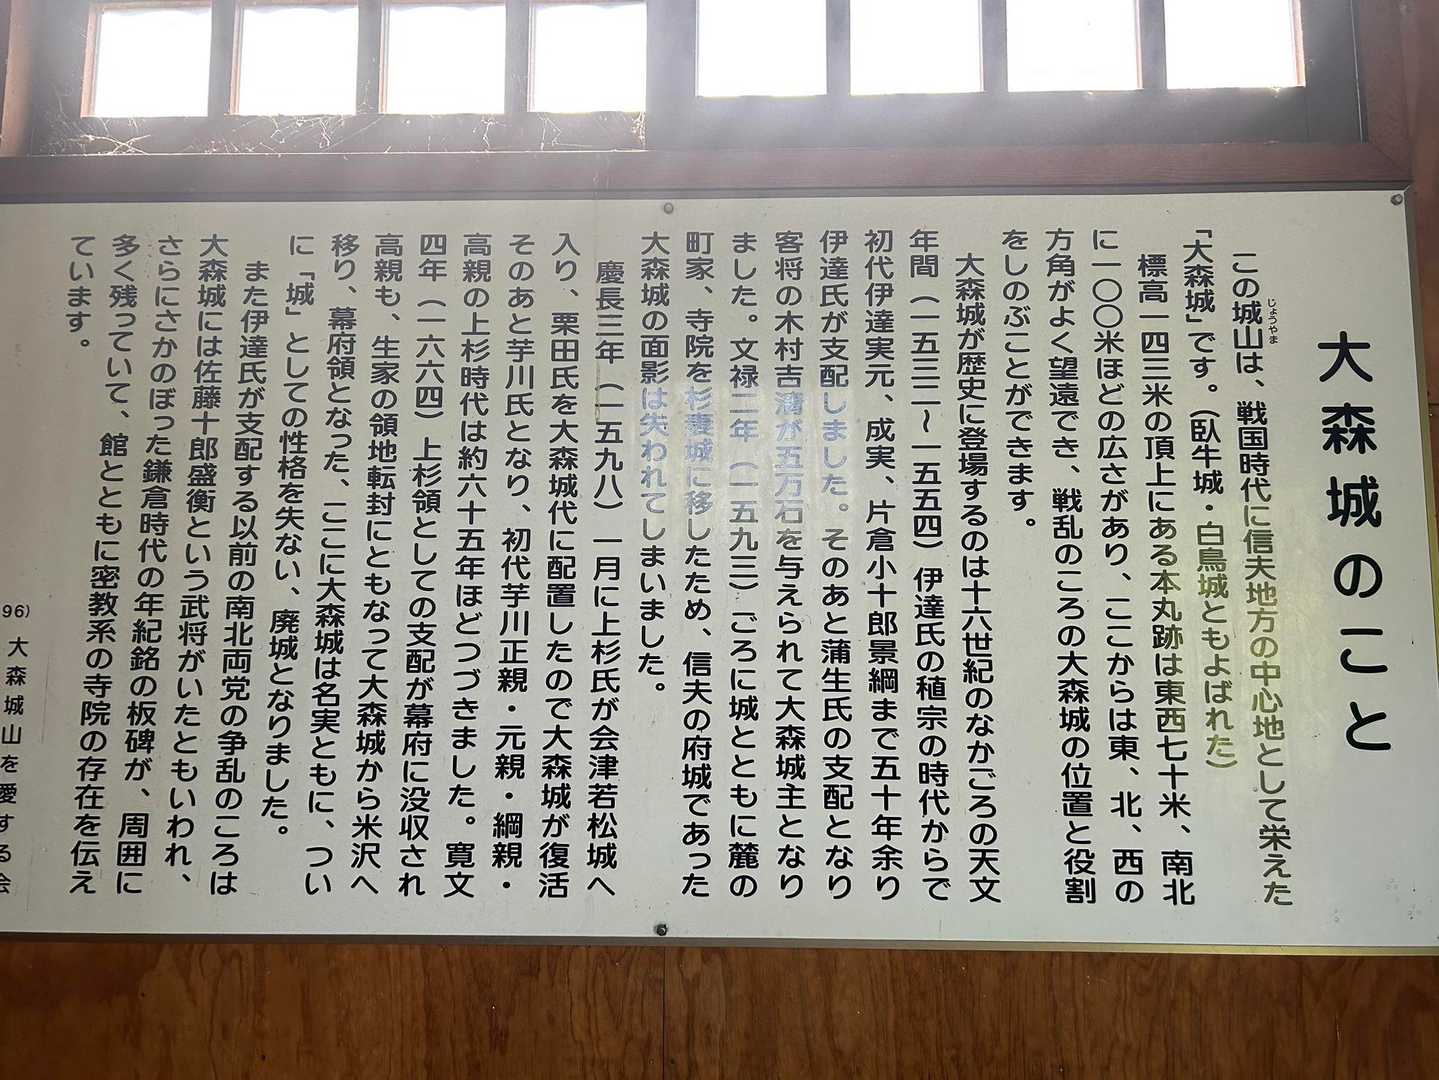 大森城のこと
この城山は、戦国時代に信夫地方の中心地として栄えた
じょうやま
「大森城」です。（臥牛城・白鳥城ともよばれた）
標高一四三米の頂上にある本丸跡は東西七十米、南北
に一〇〇米ほどの広さがあり、ここからは東、北、西の
方角がよく望遠でき、戦乱のころの大森城の位置と役割
をしのぶことができます。
大森城が歴史に登場するのは十六世紀のなかごろの天文
年間（一五三二～一五五四）伊達氏の稙宗の時代からで
初代伊達実元、成実、片倉小十郎景綱まで五十年余り
伊達氏が支配しました。そのあと蒲生氏の支配となり
客将の木村吉清が五万石を与えられて大森城主となり
ました。文禄二年（一五九三）ごろに城とともに麓の
町家、寺院を杉妻城に移したため、信夫の府城であった
大森城の面影は失われてしまいました。
慶長三年（一五九八）一月に上杉氏が会津若松城へ
入り、栗田氏を大森城代に配置したので大森城が復活
そのあと芋川氏となり、初代芋川正親・元親・綱親・
高親の上杉時代は約六十五年ほどつづきました。寛文
四年（一六六四）上杉領としての支配が幕府に没収され
高親も、生家の領地転封にともなって大森城から米沢へ
移り、幕府領となった、ここに大森城は名実ともに、つい
に「城」としての性格を失ない、廃城となりました。
また伊達氏が支配する以前の南北両党の争乱のころは
大森城には佐藤十郎盛衡という武将がいたともいわれ、
さらにさかのぼった鎌倉時代の年紀銘の板碑が、周囲に
多く残っていて、館とともに密教系の寺院の存在を伝え
ています。
96）大森城山を愛する会